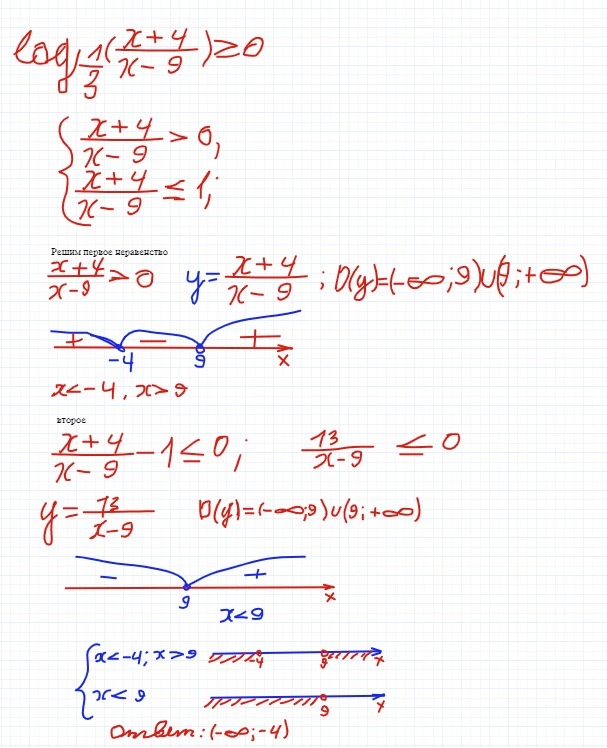 log_{1/3}(\frac{x+4}{x-9})≥0
{ \frac{x+4}{x-9} > 0,
\frac{x+4}{x-9} ≤ 1;
Решим первое неравенство
\frac{x+4}{x-9} > 0 y = \frac{x+4}{x-9} ; D(y)=(-∞;9)∪(9;+∞)
+ − +
-4 9 x
x<-4, x>9
второе
\frac{x+4}{x-9} - 1 ≤ 0; \frac{13}{x-9} ≤ 0
y = \frac{13}{x-9} D(y)=(-∞;9)∪(9;+∞)
− +
9 x
x<9
{ x<-4; x>9 -4 9 x
x<9 9 x
Ответ: (-∞;-4)